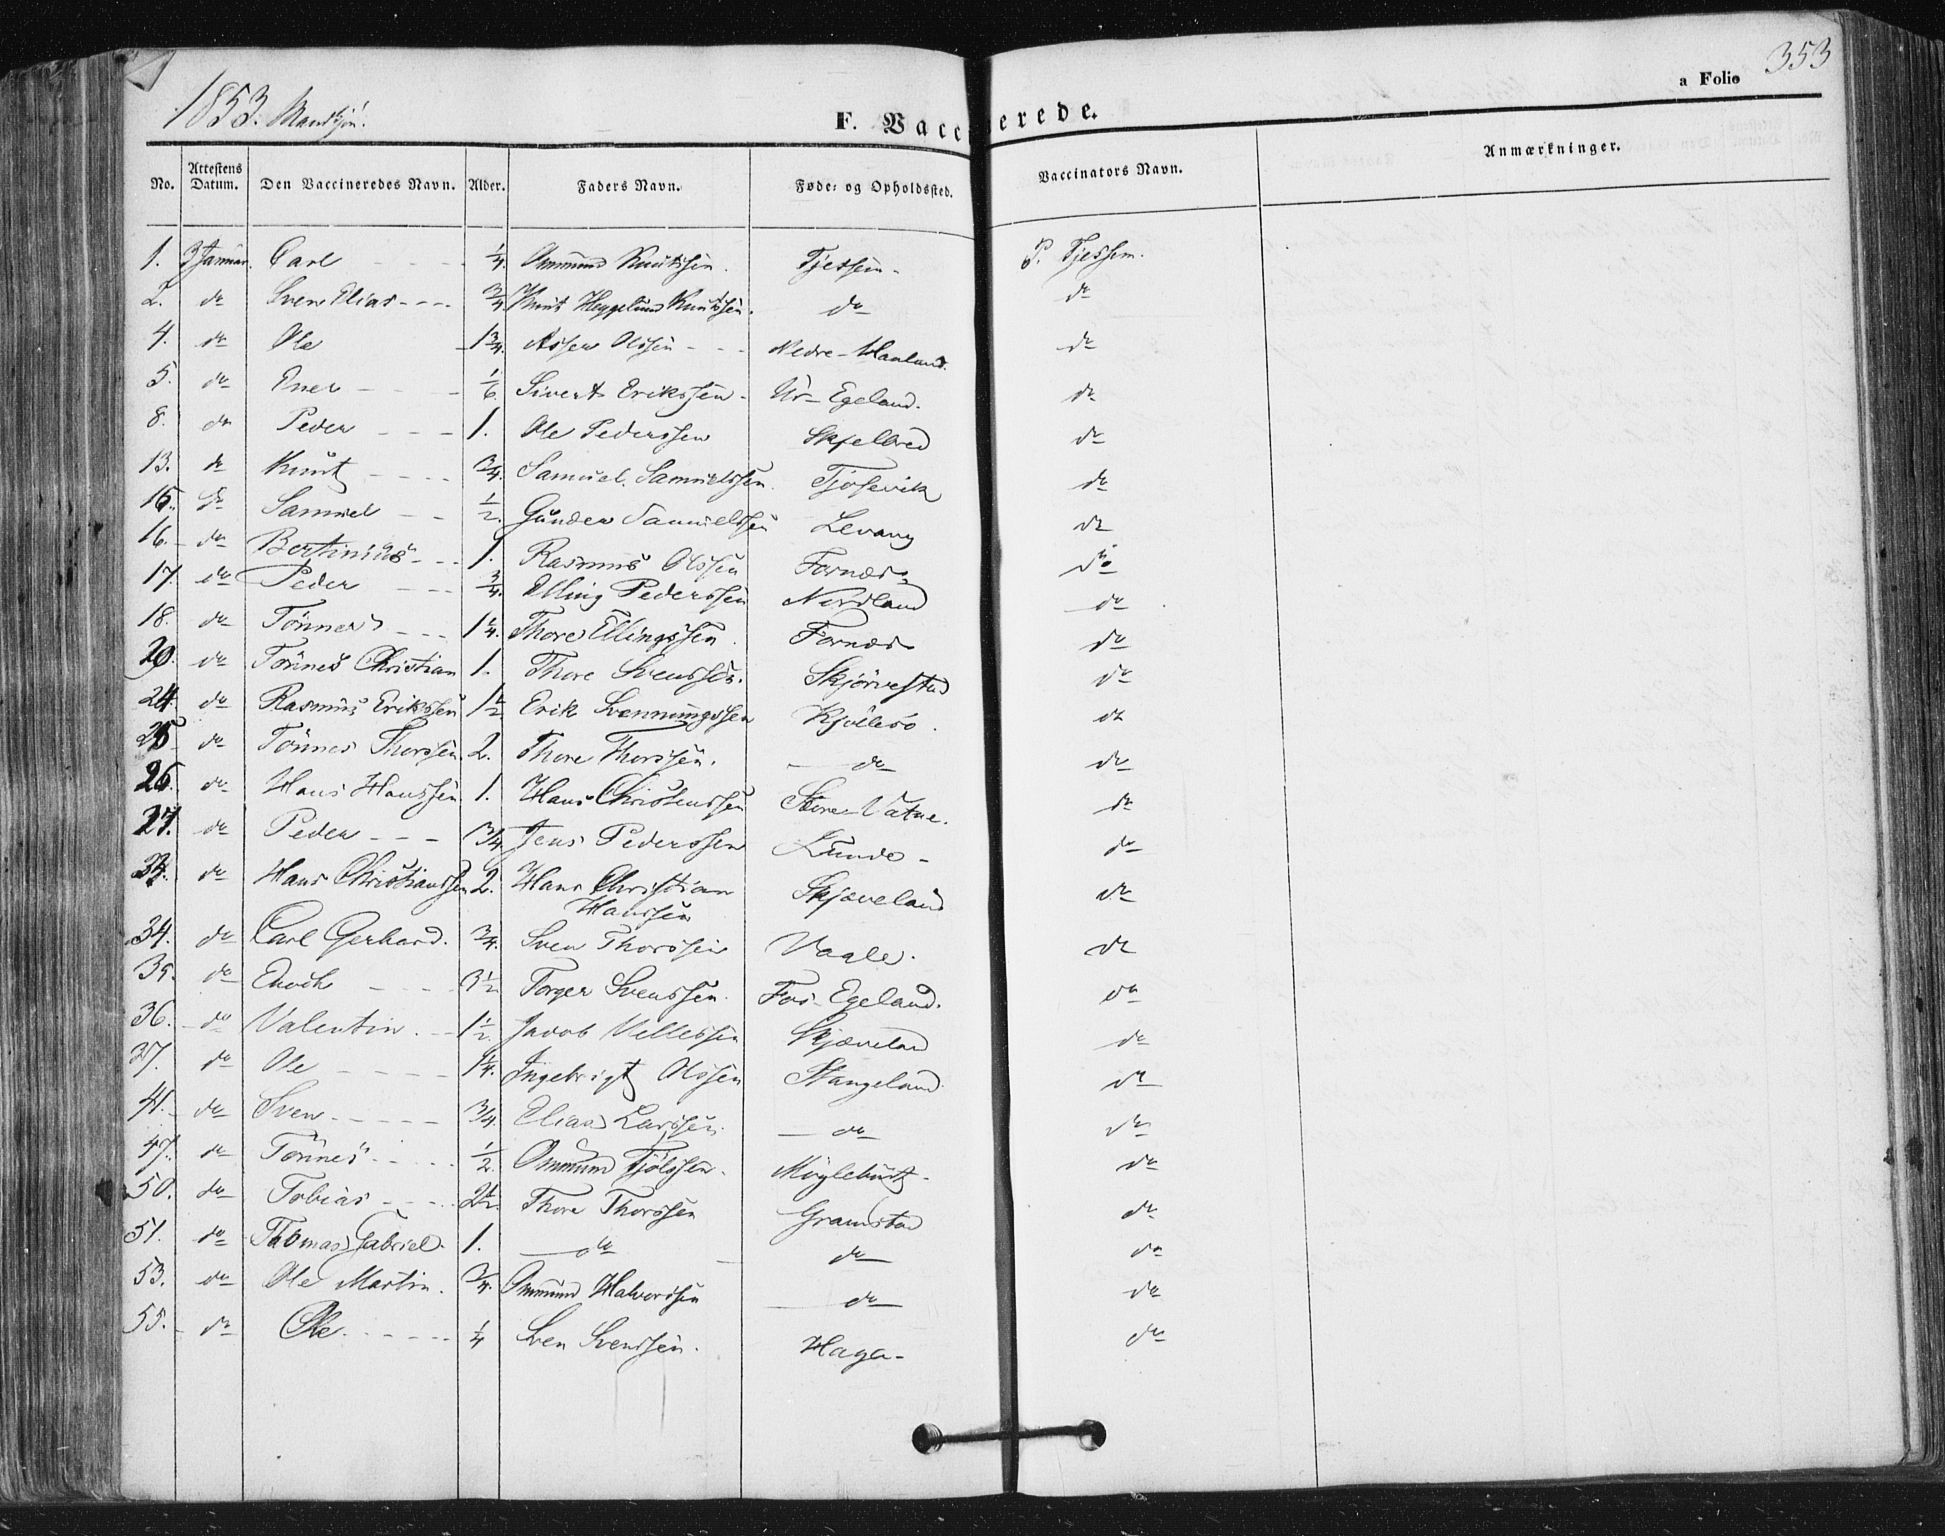 353
a Folio
1853. Mandkjøn.
F. Vaccinerede.
No. Attestens Datum. Den Vaccineredes Navn. Alder. Faders Navn. Føde- og Opholdssted. Vaccinators Navn. Anmærkninger.
1. 3 Januar. Carl 1/4. Ommund Knutssen. Tjessem. P. Tjessem.
2. do Sven Elias 3/4 Knut Heggelund Knutssen. do do
4. do Ole 1 3/4. Asser Olssen Nedre-Haaland. do
5. do Ener 1/6. Sivert Erikssen Ur-Egeland. do
8. do Peder 1. Ole Pederssen Skjelbred do
13. do Knut 3/4. Samuel Samuelssen Tjosevik do
15. do Samuel 1/2. Gunder Samuelssen Levang do
16. do Bertinius 1. Rasmus Olssen Fornæs do
17. do Peder 3/4. Elling Pederssen Nordland do
18. do Tønnes 1 1/4. Thore Ellingssen. Fornæs do
20. do Tønnes Christian 1. Thore Svenssen. Skjørvestad do
24. do Rasmus Erikssen 1 1/2 Erik Svenningssen do
25 do Tønnes Thorssen 2. Thore Thorssen. do do
26. do Hans Hanssen 1. Hans Christenssen Store-Vatne. do
27. do Peder 3/4. Jens Pederssen Lunde do
do Hans Christianssen 2. Hans Christian Hanssen Skjæveland do
34. do Carl Gerhard. 3/4. Sven Thorssen Vagle. do
35. do Enoch 3 1/2 Torger Svenssen. Fos-Egeland. do
36. do Valentin. 1 1/2. Jacob Vellessen Skjæveland do
37. do Ole 1 1/4. Ingebrigt Olssen Stangeland do
41. do Sven 3/4. Elias Larssen. do do
47. do Tønnes 1/2. Ommund Tjølssen. Møglebust do
50. do Tobias 2 1/2. Thore Thorssen Gramstad do
51. do Thomas Gabriel. 1. do do do
53. do Ole Martin. 3/4. Ommund Halvorssen do do
55. do Ole. 1/4 Sven Svenssen. Haga do